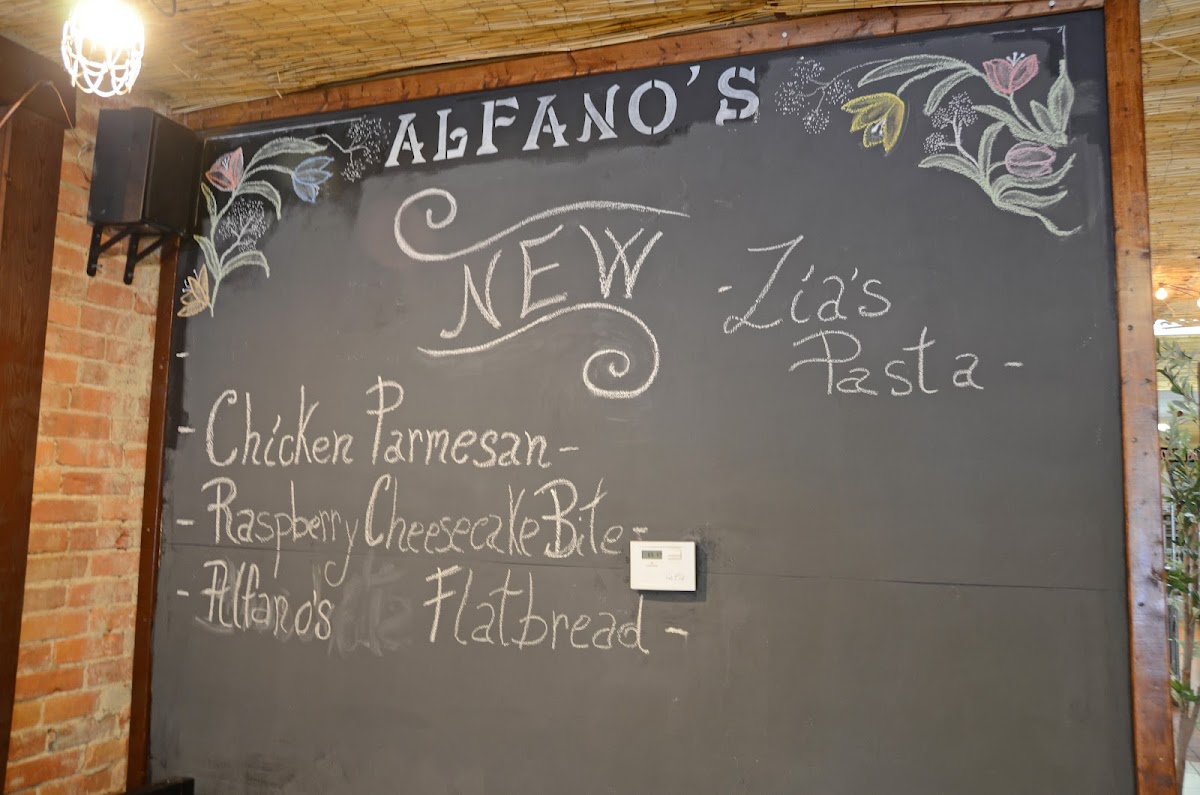 ALFANO'S
NEW
- Zia's
Pasta -
- Chicken Parmesan -
- Raspberry Cheesecake Bite -
- Alfano's Flatbread -